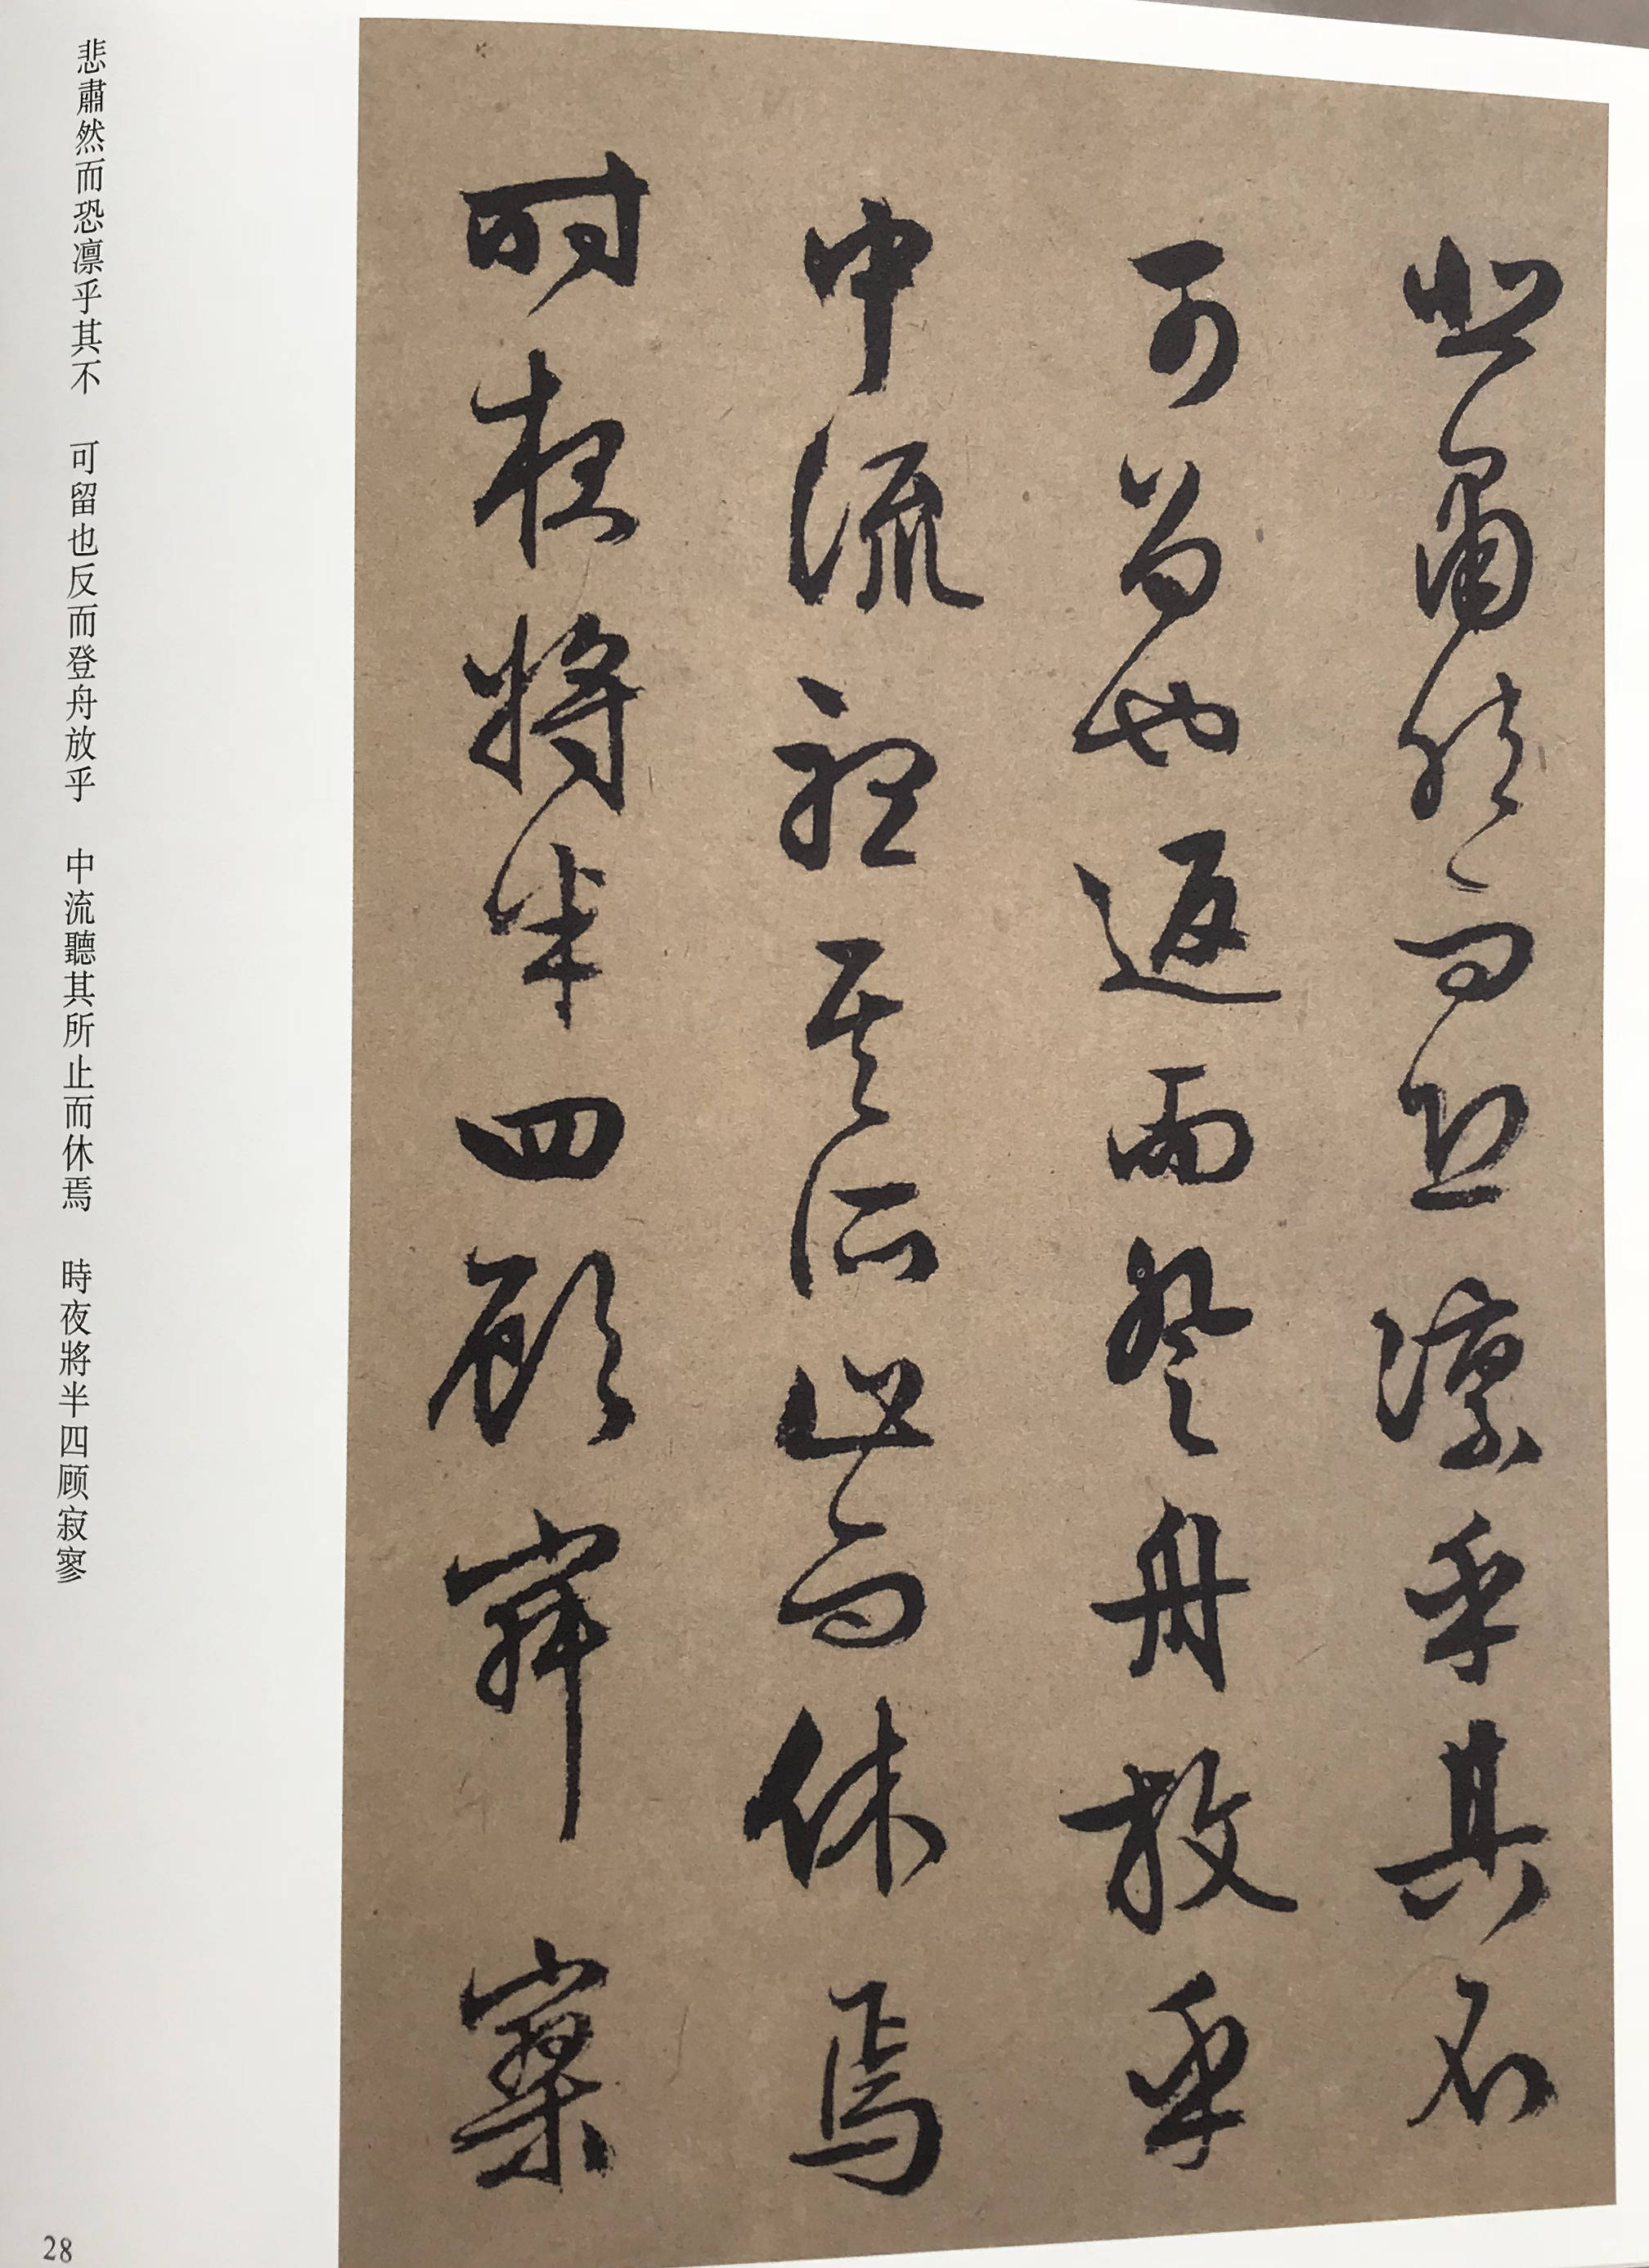 悲肅然而恐凛乎其不
可留也返而登舟放乎
中流聽其所止而休焉
時夜將半四顧寂寥
悲肅然而恐凛乎其不　可留也反而登舟放乎　中流聽其所止而休焉　時夜將半四顾寂寥
28